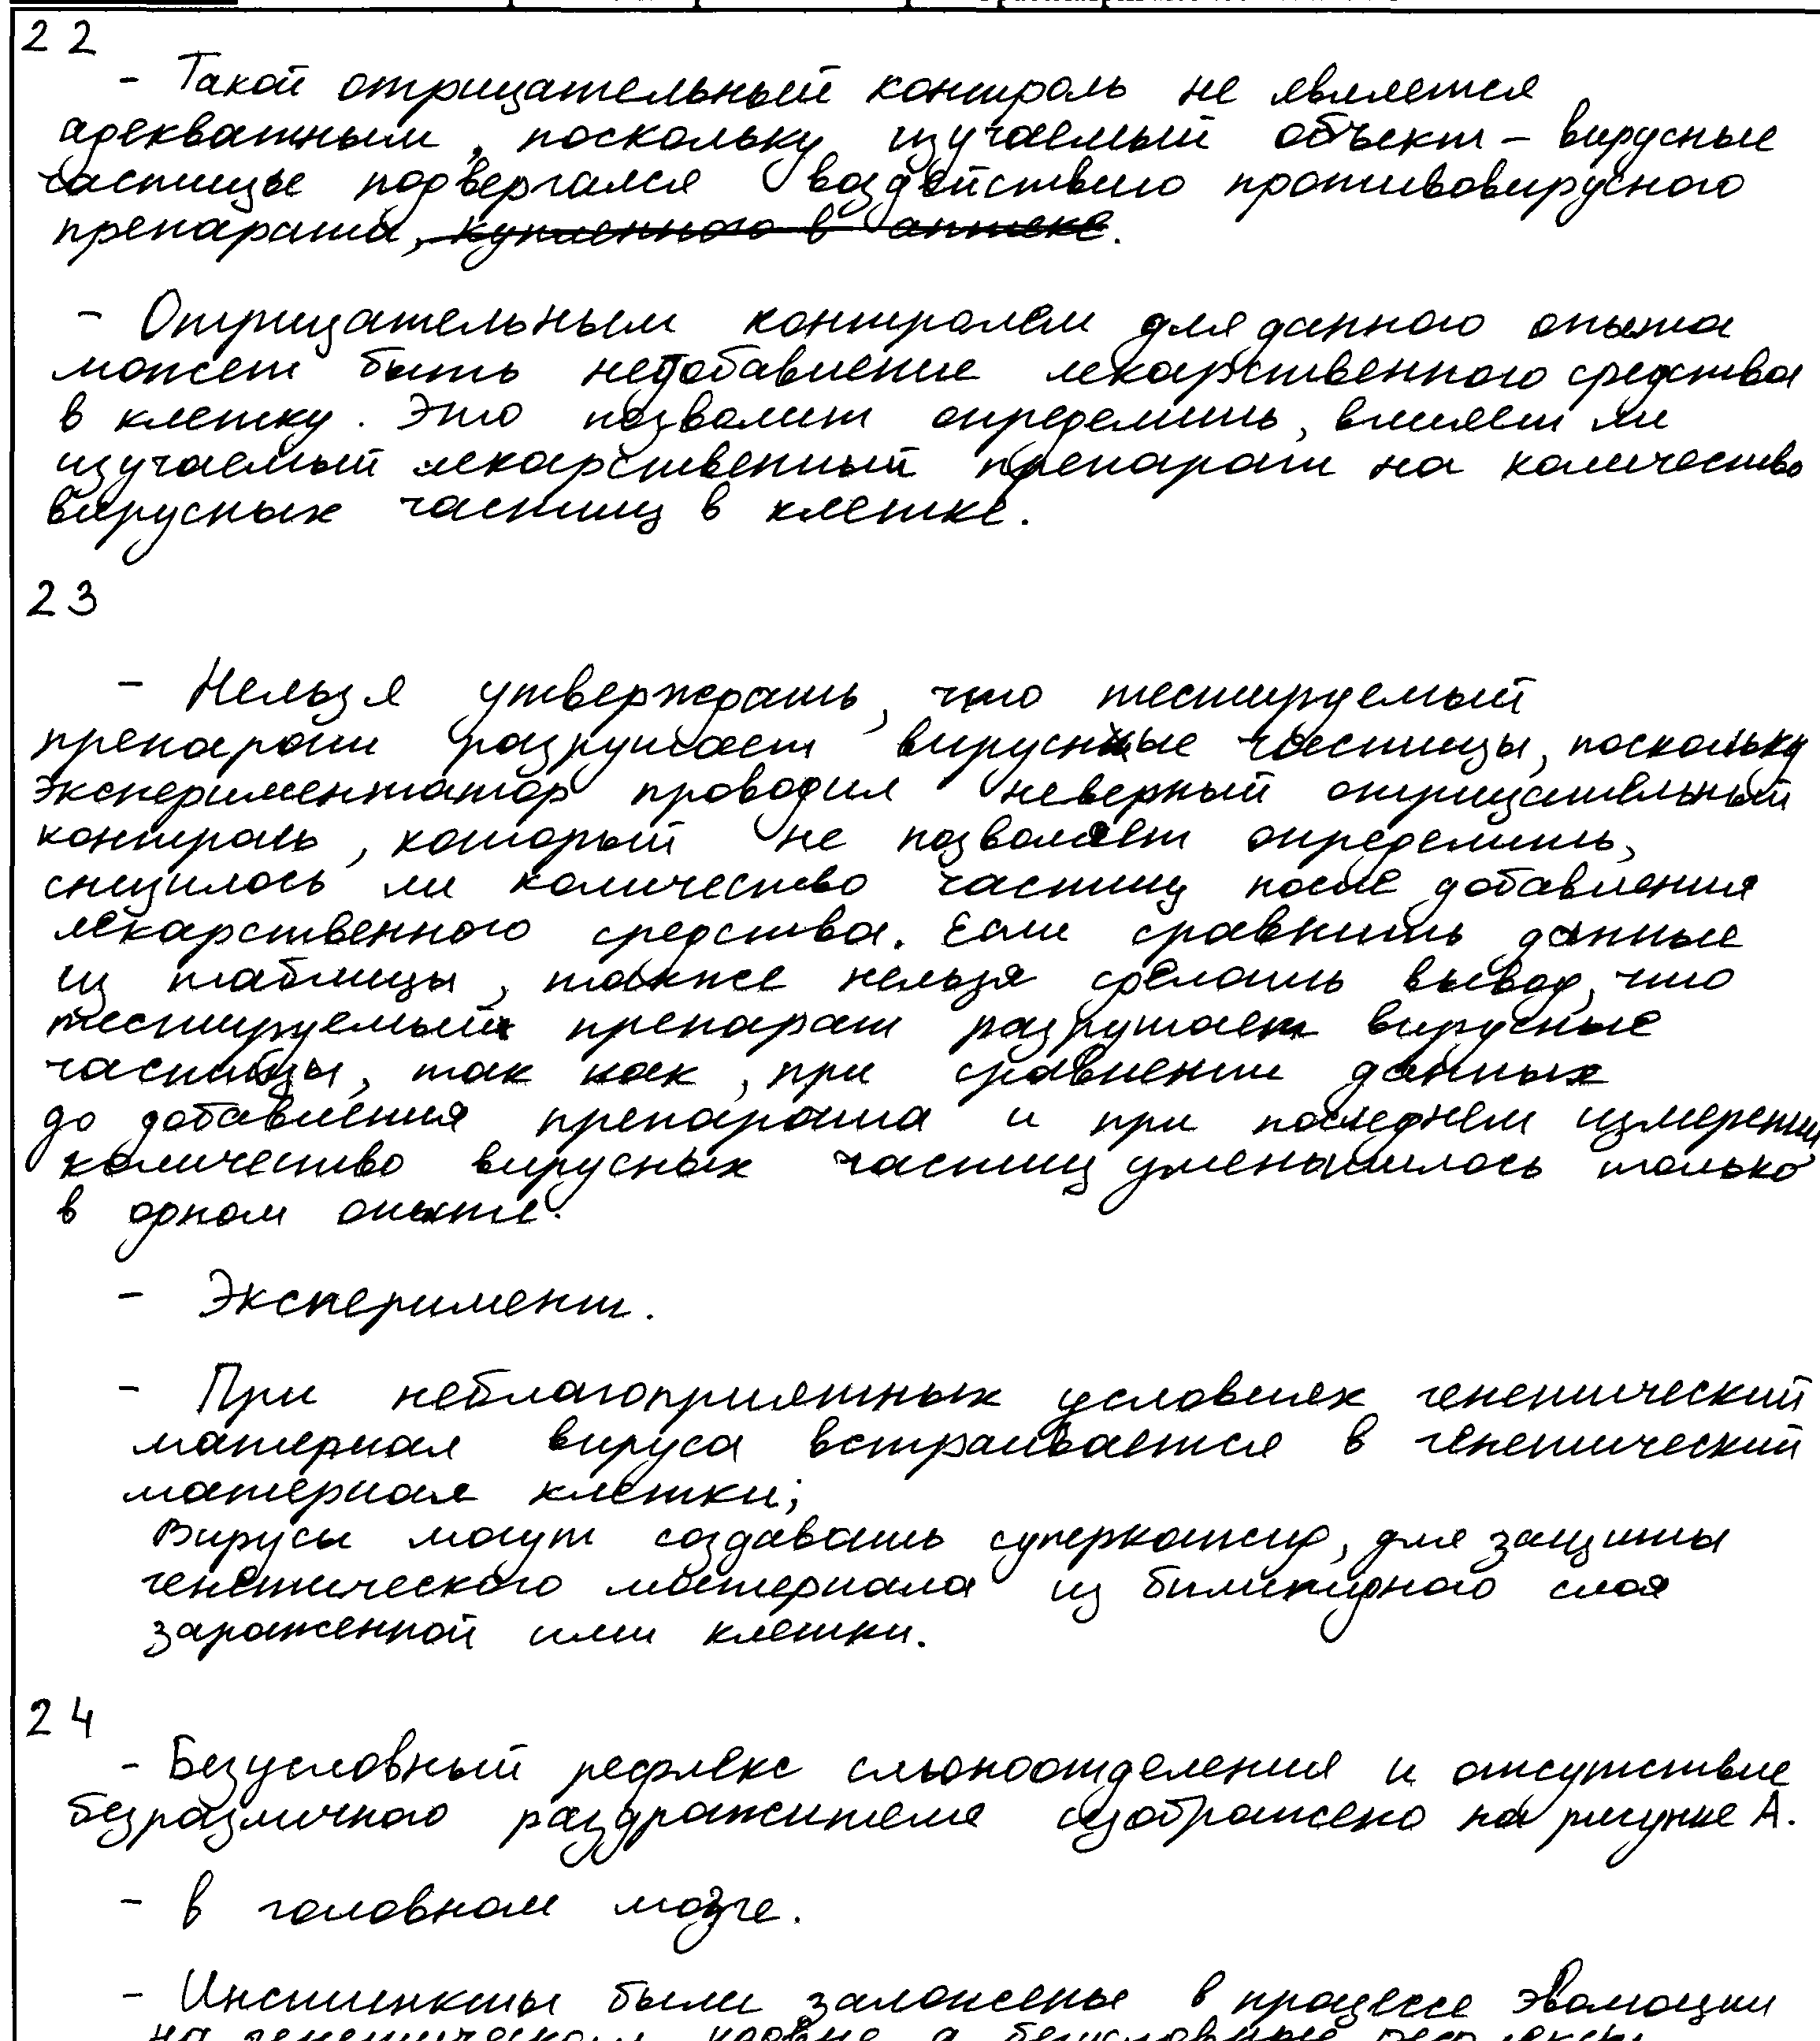 22
- Такой отрицательный контроль не является
адекватным, поскольку изучаемый объект - вирусные
частицы подвергался воздействию противовирусного
препарата, купленного в аптеке.
- Отрицательным контролем для данного опыта
может быть недобавление лекарственного средства
в клетку. Это позволит определить, влияет ли
изучаемый лекарственный препарат на количество
вирусных частиц в клетке.
23
- Нельзя утверждать, что тестируемый
препарат разрушает вирусные частицы, поскольку
экспериментатор проводил неверный отрицательный
контроль, который не позволяет определить,
снизилось ли количество частиц после добавления
лекарственного средства. Если сравнить данные
из таблицы, также нельзя сделать вывод, что
тестируемый препарат разрушает вирусные
частицы, так как, при сравнении данных
до добавления препарата и при последнем измерении
количество вирусных частиц уменьшилось только
в одном опыте.
- Эксперимент.
- При неблагоприятных условиях генетический
материал вируса встраивается в генетический
материал клетки;
Вирусы могут создавать суперкапсид, для защиты
генетического материала из билипидного слоя
зараженной ими клетки.
24
- Безусловный рефлекс слюноотделения и отсутствие
безразличного раздражителя изображено на рисунке А.
- в головном мозге.
- Инстинкты были заложены в процессе эволюции
на генетическом уровне, а безусловные рефлексы